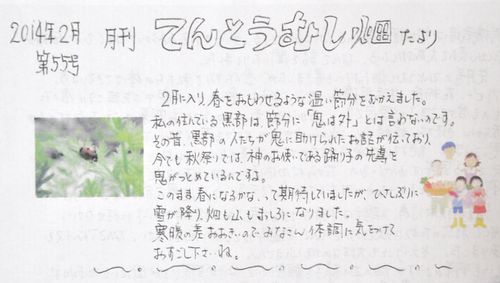 2014年2月
第55号
月刊 てんとうむし畑 たより
2月に入り、春をおもわせるような温い節分をむかえました。
私の住んでいる黒部は、節分に「鬼は外」とは言わないのです。
その昔、黒部の人たちが鬼に助けられたお話が伝っており、
今でも秋祭りでは、神のお使いである踊り子の先導を
鬼がつとめているんですよ。
このまま春になるかな、って期待していましたが、ひさしぶりに
雪が降り、畑も山もまっしろになりました。
寒暖の差おおきいので、みなさん体調に気をつけて
おすごし下さいね。